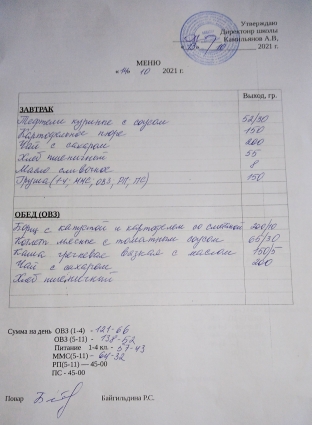 Утверждаю
Директор школы
Камильянов А.В.
2021 г.
МЕНЮ
« 14 » 10 2021 г.
Выход, гр.
ЗАВТРАК
Тефтели куриные с соусом 52/30
Картофельное пюре 150
Чай с сахаром 200
Хлеб пшеничный 55
Масло сливочное 8
Груша (1-4, ММС, ОВЗ, РП, ПС) 150
ОБЕД (ОВЗ)
Борщ с капустой и картофелем со сметаной 200/10
Котлет мясные с томатным соусом 65/30
Каша гречневая вязкая с маслом 150/5
Чай с сахаром 200
Хлеб пшеничный
Сумма на день ОВЗ (1-4) - 121-66
ОВЗ (5-11) - 138-52
Питание 1-4 кл. - 57-43
ММС(5-11) – 64-32
РП(5-11) — 45-00
ПС - 45-00
Повар Байгильдина Р.С.